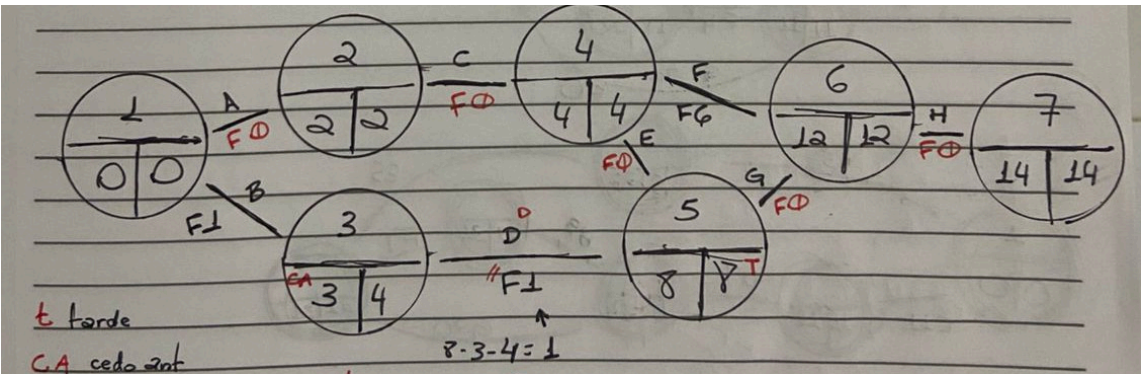 1
0 0
A
FØ
B
F1
2
2 2
C
FØ
3
CA
3 4
D
D
"F1
8-3-4=1
4
4 4
F
F6
E
FØ
5
8 8
T
G
FØ
6
12 12
H
FØ
7
14 14
t tarde
CA cedo ant